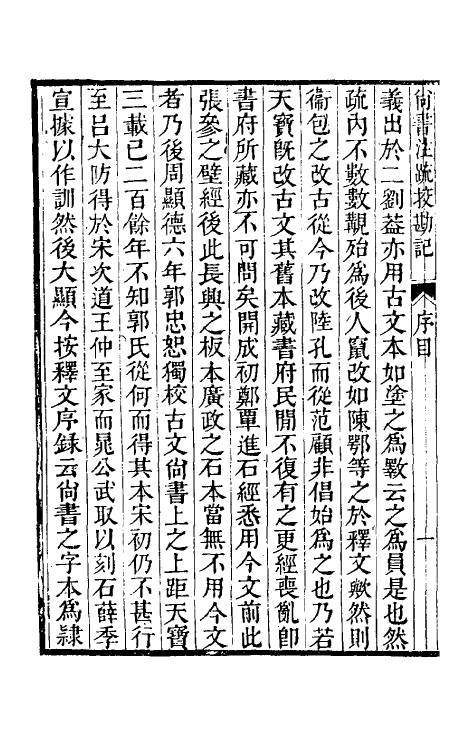 尙書注疏挍勘記 序目 一
義出於二劉葢亦用古文本如塗之爲斁云之爲員是也然
疏內不數數覯殆爲後人竄改如陳鄂等之於釋文歟然則
衞包之改古從今乃改陸孔而從范顧非倡始爲之也乃若
天寶旣改古文其舊本藏書府民閒不復有之更經喪亂卽
書府所藏亦不可問矣開成初鄭覃進石經悉用今文前此
張參之壁經後此長興之板本廣政之石本當無不用今文
者乃後周顯德六年郭忠恕獨校古文尙書上之上距天寶
三載已二百餘年不知郭氏從何而得其本宋初仍不甚行
至呂大防得於宋次道王仲至家而晁公武取以刻石薛季
宣據以作訓然後大顯今按釋文序錄云尙書之字本爲隷